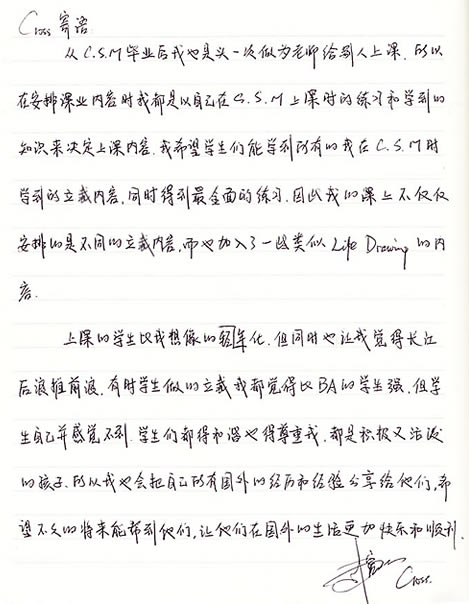 Cross 寄语
从 C.S.M 毕业后我也是头一次做为老师给别人上课. 所以
在安排课业内容时我都是以自己在 C.S.M 上课时的练习和学到的
知识来决定上课内容. 我希望学生们能学到所有的我在 C.S.M 时
学到的立裁内容, 同时得到最全面的练习. 因此我的课上不仅仅
安排的是不同的立裁内容, 而也加入了一些类似 Life Drawing 的内
容.
上课的学生比我想像的年化. 但同时也让我觉得长江
后浪推前浪. 有时学生做的立裁我都觉得比BA的学生强. 但学
生自己并感觉不到. 学生们都得和谐也得尊重我, 都是积极又活泼
的孩子. 所以我也会把自己所有国外的经历和经验分享给他们, 希
望不久的将来能帮到他们, 让他们在国外的生活更加快乐和顺利.
Cross.